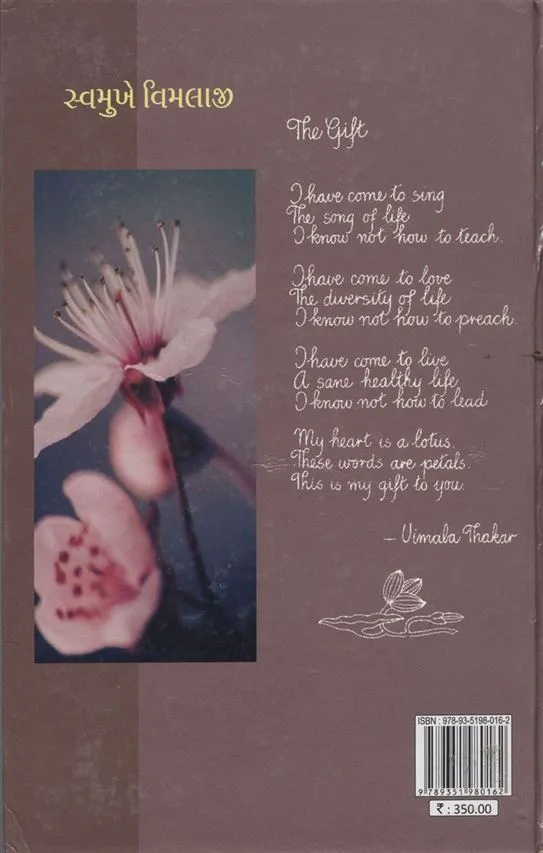 સ્વમુખે વિમલાજી
The Gift
I have come to sing
The song of life
I know not how to teach.
I have come to love
The diversity of life
I know not how to preach.
I have come to live
A sane healthy life
I know not how to lead
My heart is a lotus.
These words are petals.
This is my gift to you.
– Vimala Thakar
ISBN : 978-93-5198-016-2
9 789351 980162
₹ : 350.00